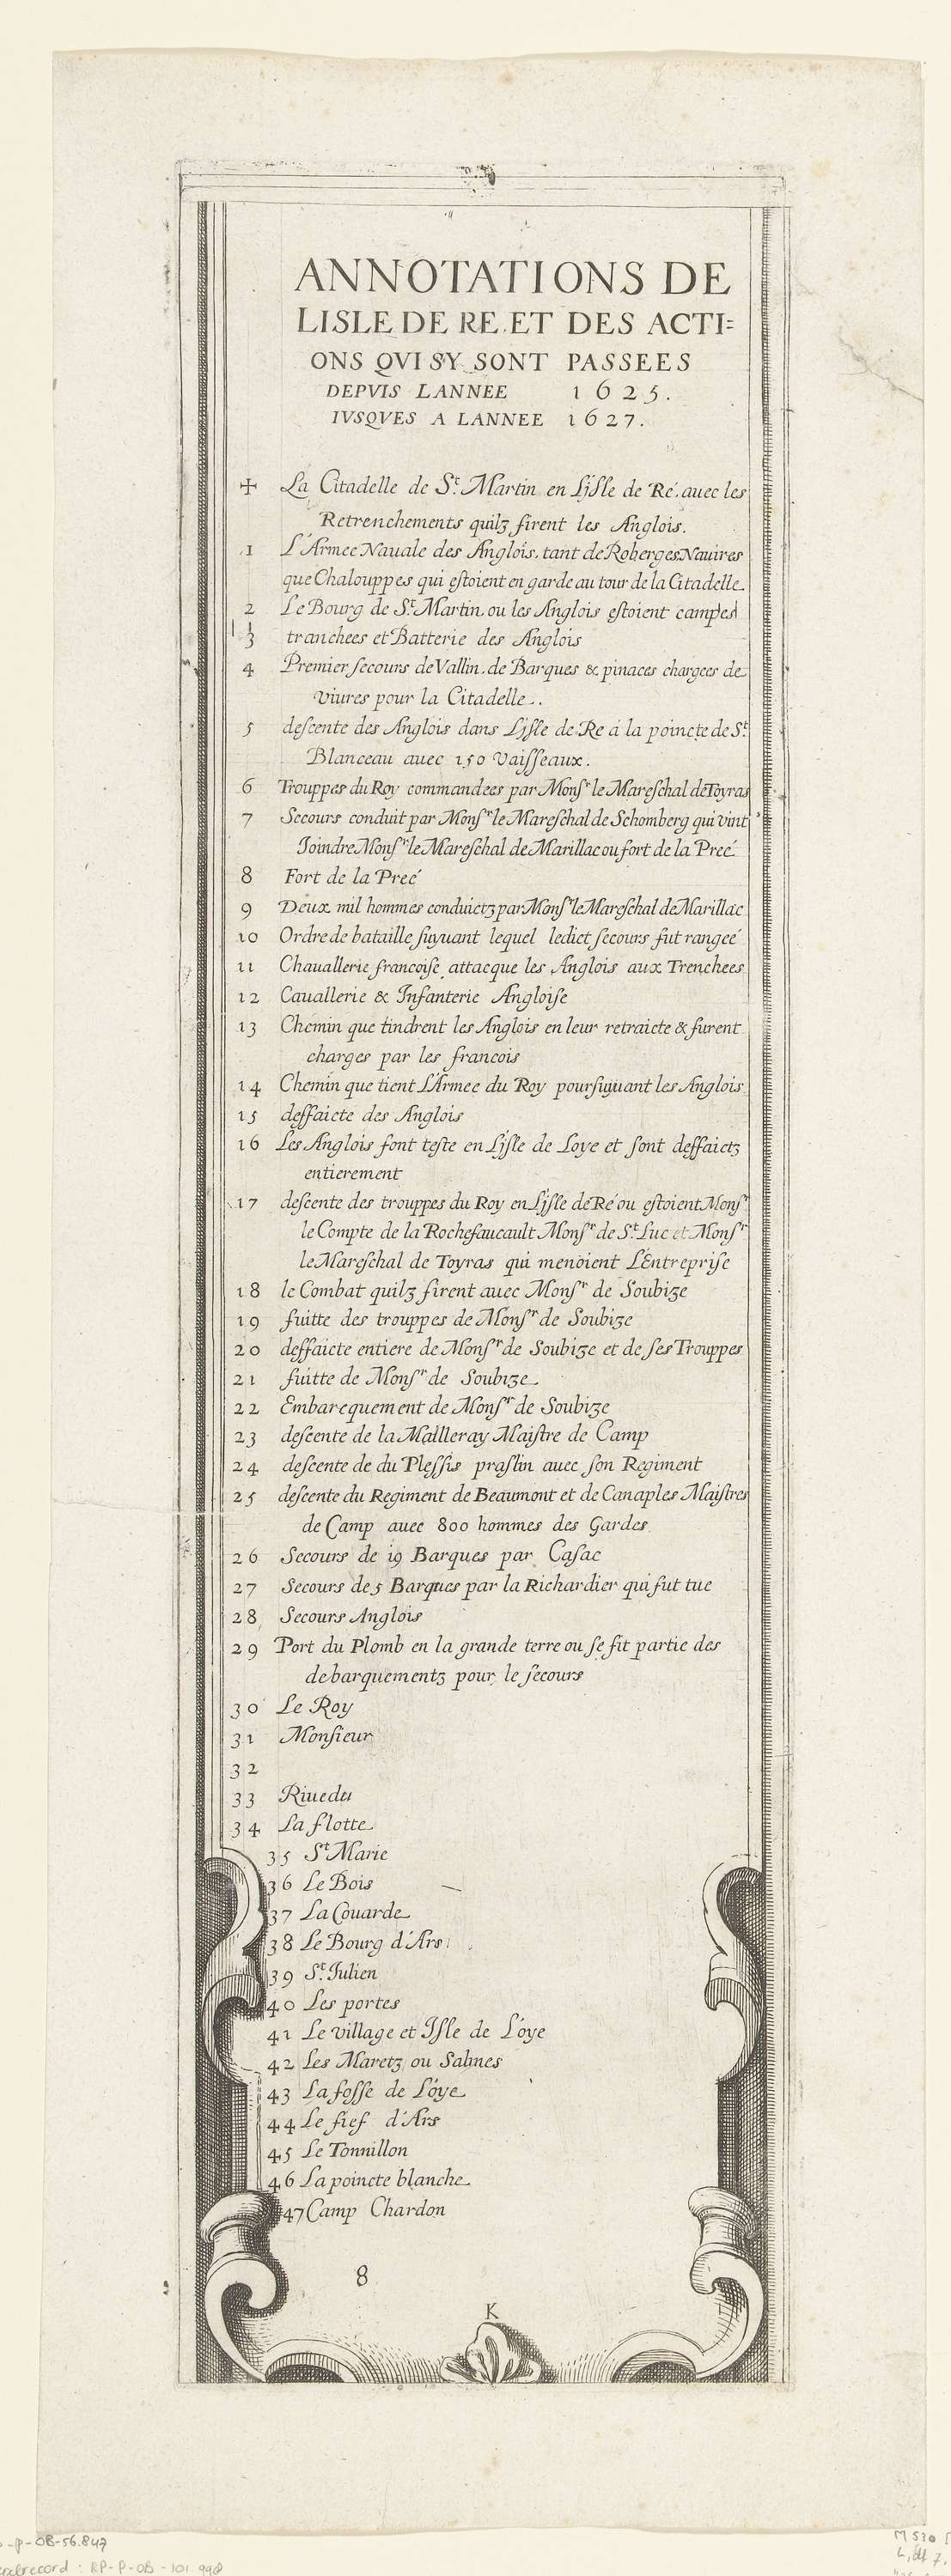 ANNOTATIONS DE
LISLE DE RE ET DES ACTI=
ONS QVI SY SONT PASSEES
DEPVIS LANNEE 1625.
IVSQVES A LANNEE 1627.
✢ La Citadelle de St. Martin en Ljsle de Ré. auec les
Retrenchements quilz firent les Anglois.
1 L'Armee Nauale des Anglois, tant de Roberges Nauires
que Chalouppes qui estoient en garde au tour de la Citadelle
2 Le Bourg de St. Martin, ou les Anglois estoient campés
3 tranchees et Batterie des Anglois
4 Premier secours de Vallin, de Barques & pinaces chargees de
viures pour la Citadelle.
5 descente des Anglois dans Ljsle de Re á la poincte de St.
Blanceau auec 150 Vaisseaux.
6 Trouppes du Roy commandees par Monsr le Mareschal de Toyras
7 Secours conduit par Monsr le Mareschal de Schomberg qui vint
Joindre Monsr le Mareschal de Marillac ou fort de la Preé
8 Fort de la Preé
9 Deux mil hommes conduictz par Monsr le Mareschal de Marillac
10 Ordre de bataille suyuant lequel ledict secours fut rangeé
11 Chauallerie francoise attacque les Anglois aux Trenchees
12 Cauallerie & Infanterie Angloise
13 Chemin que tindrent les Anglois en leur retraicte & furent
charges par les francois
14 Chemin que tient L'Armee du Roy poursuiuant les Anglois
15 deffaicte des Anglois
16 Les Anglois font teste en Ljsle de Loye et sont deffaictz
entierement
17 descente des trouppes du Roy en Ljsle de Ré ou estoient Monsr
le Compte de la Rochefaucault Monsr de St. Luc et Monsr
le Mareschal de Toyras qui menoient L'Entreprise
18 le Combat quilz firent auec Monsr de Soubize
19 fuitte des trouppes de Monsr de Soubize
20 deffaicte entiere de Monsr de Soubize et de ses Trouppes
21 fuitte de Monsr de Soubize
22 Embarequement de Monsr de Soubize
23 descente de la Mailleray Maistre de Camp
24 descente de du Plessis praslin auec son Regiment
25 descente du Regiment de Beaumont et de Canaples Maistres
de Camp auec 800 hommes des Gardes
26 Secours de 19 Barques par Casac
27 Secours de 5 Barques par la Richardier qui fut tue
28 Secours Anglois
29 Port du Plomb en la grande terre ou se fit partie des
debarquementz pour le secours
30 Le Roy
31 Monsieur
32
33 Riuedu
34 La flotte
35 St Marie
36 Le Bois
37 La Couarde
38 Le Bourg d'Ars
39 St. Julien
40 Les portes
41 Le village et Isle de L'oye
42 Les Maretz ou Salines
43 La fosse de L'oye
44 Le fief d'Ars
45 Le Tonnillon
46 La poincte blanche
47 Camp Chardon
8
K
-P-OB-56.847
M 510
RP-P-OB-101.998